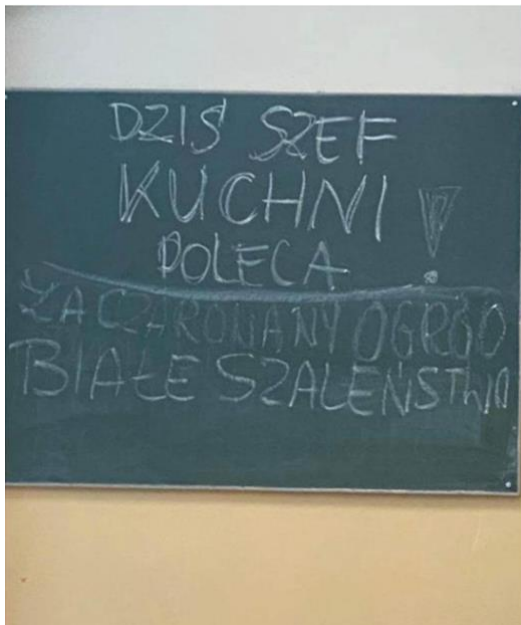 DZIŚ SZEF
KUCHNI !
POLECA
ZACZAROWANY OGRÓD
BIAŁE SZALEŃSTWO